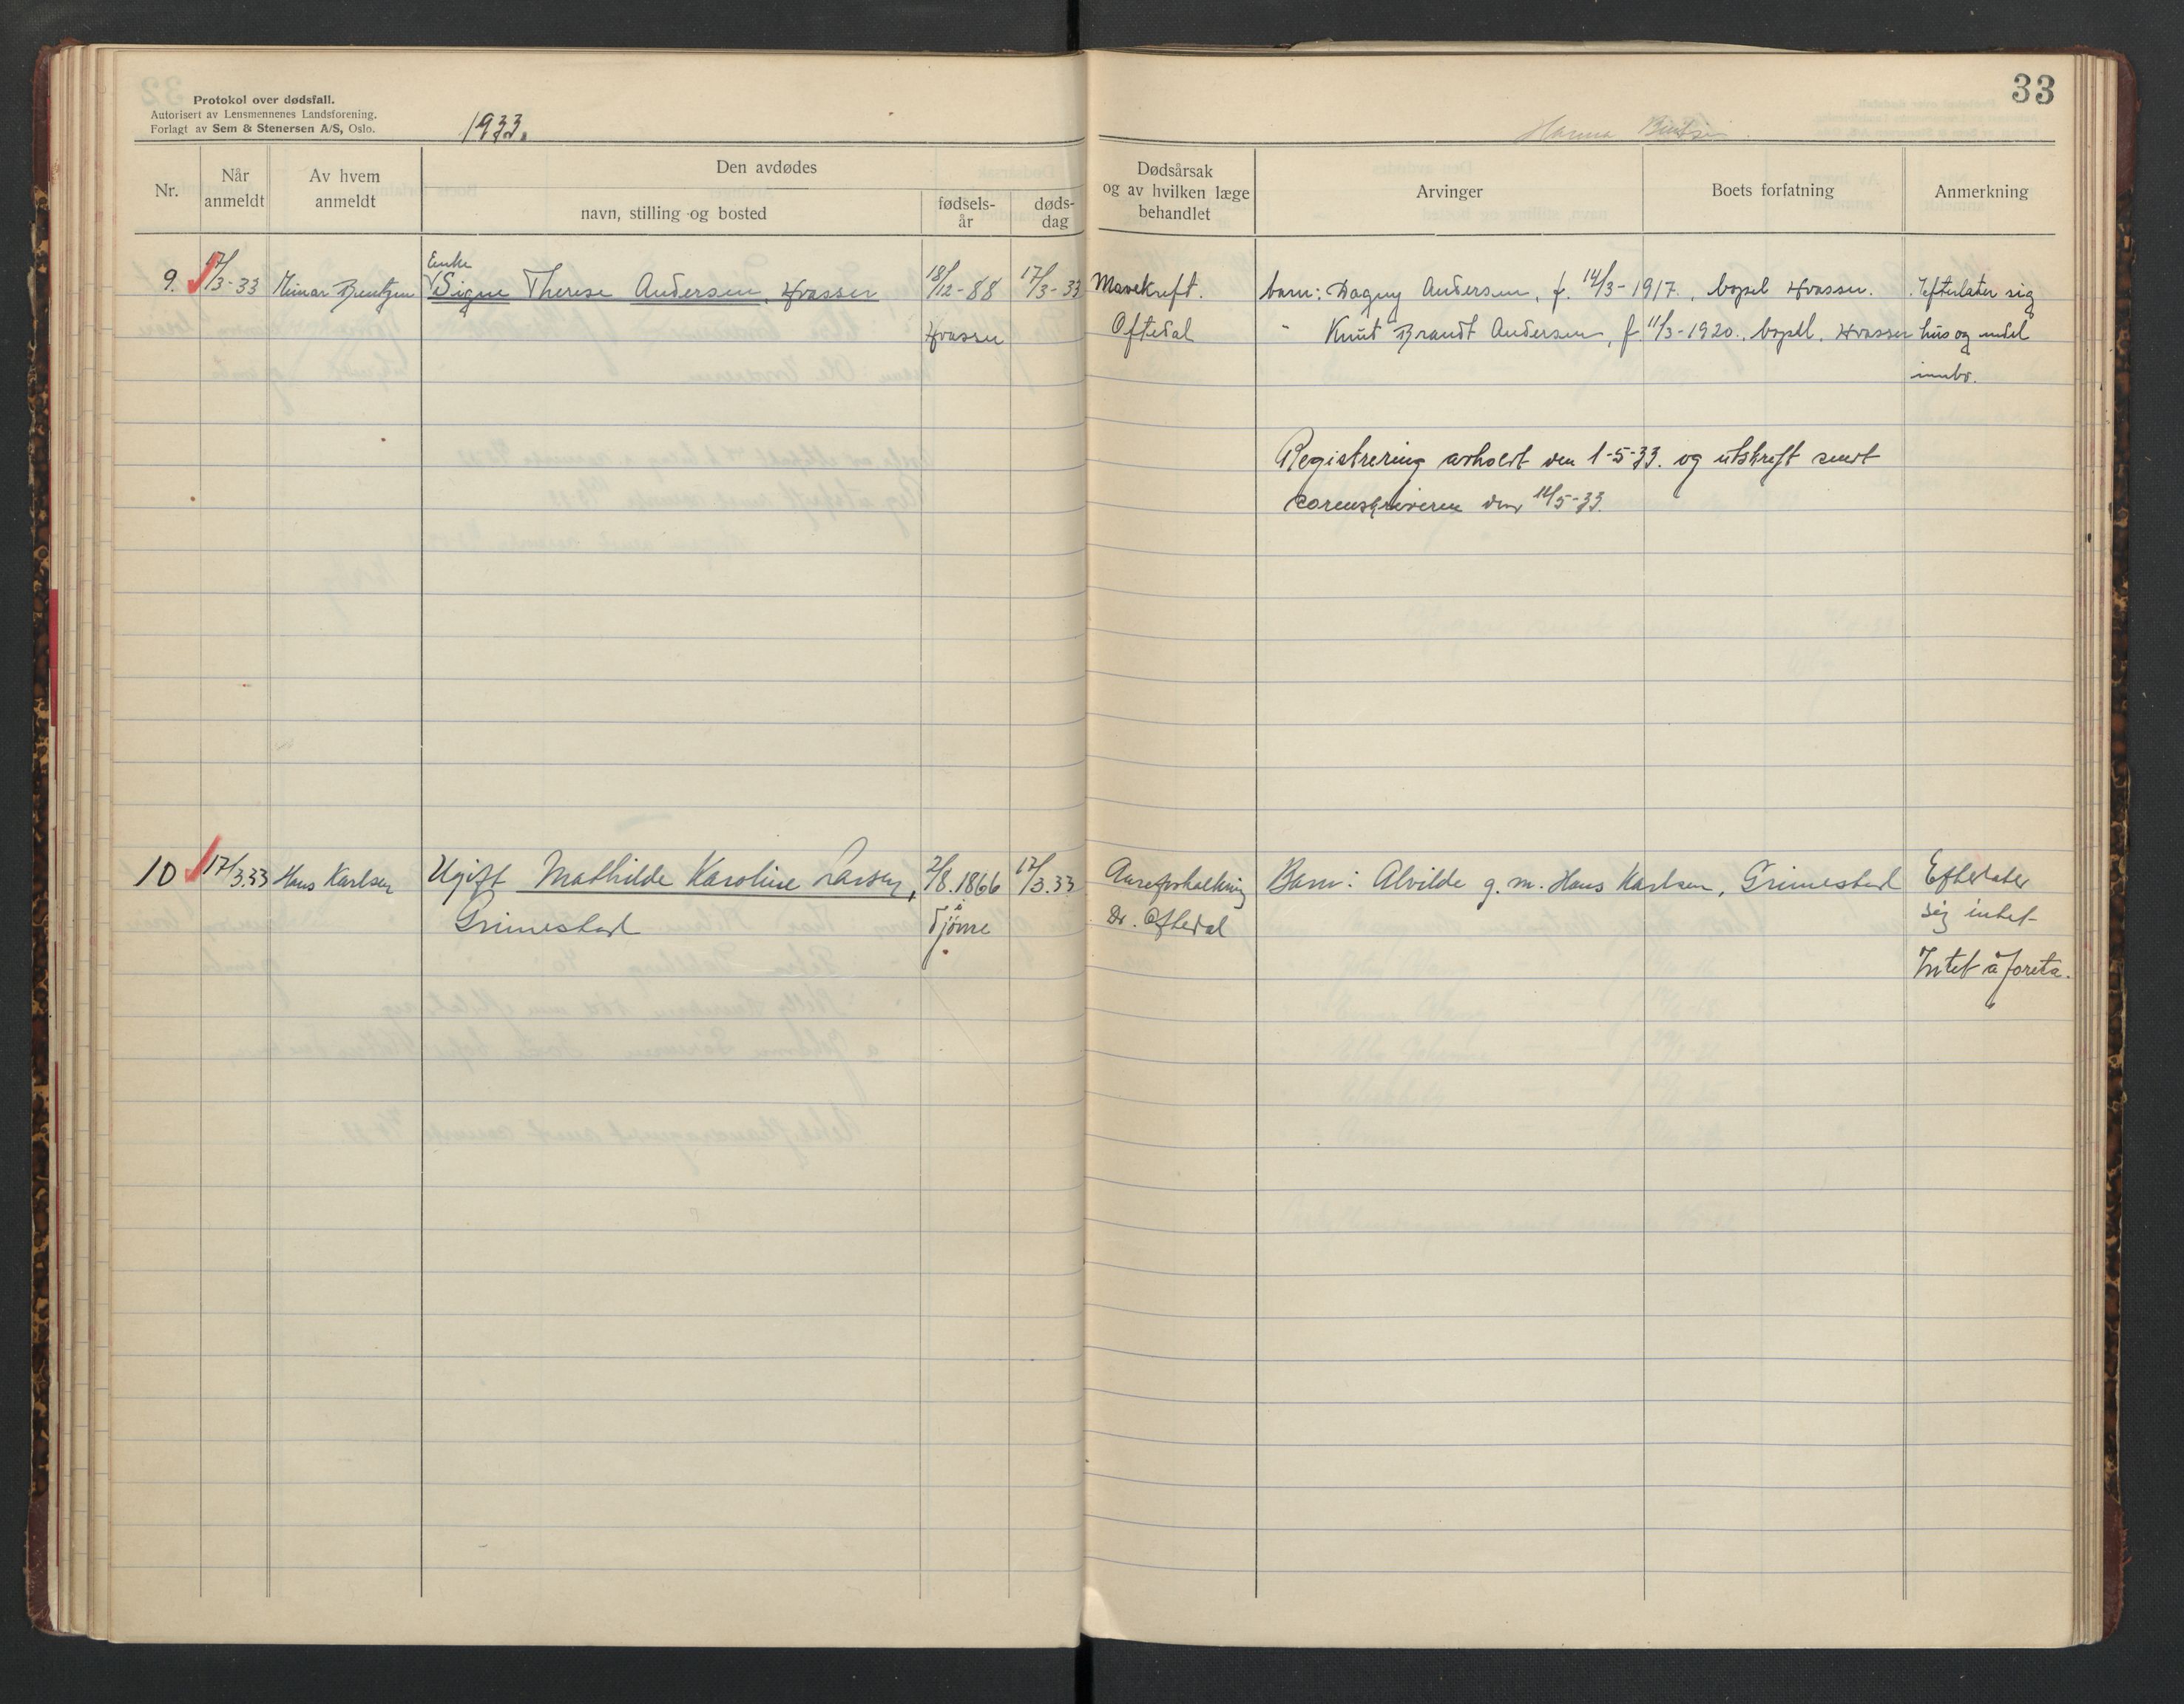 Protokol over dødsfall.
Autorisert av Lensmennenes Landsforening.
Forlagt av Sem & Stenersen A/S, Oslo.
1933.
33
Hanna
Nr.
Når anmeldt
Av hvem anmeldt
Den avdødes
navn, stilling og bosted
fødsels-år
døds-dag
Dødsårsak og av hvilken læge behandlet
Arvinger
Boets forfatning
Anmerkning
9. 17/3-33 Bentzen Enke Signe Therese Andersen, Hvasser 18/12-88 17/3-33 Mavekreft. barn: Dagny Andersen, f. 14/3-1917., bopel Hvasser. Efterlater sig
Hvasser Oftedal " Knut Brandt Andersen, f. 11/3-1920., bopel. Hvasser hus og endel
innbo.
Registrering avholdt den 1-5-33. og utskrift sendt
sorenskriveren den 12/5-33.
10 17/3.33 Hans Karlsen Ugift Mathilde Karoline Larsen, 2/8.1866 17/3.33 Aareforkalkning Barn: Alvilde g. m. Hans Karlsen, Grimestad Efterlater
Grimestad Tjøme Dr. Oftedal sig intet
Intet å foreta.